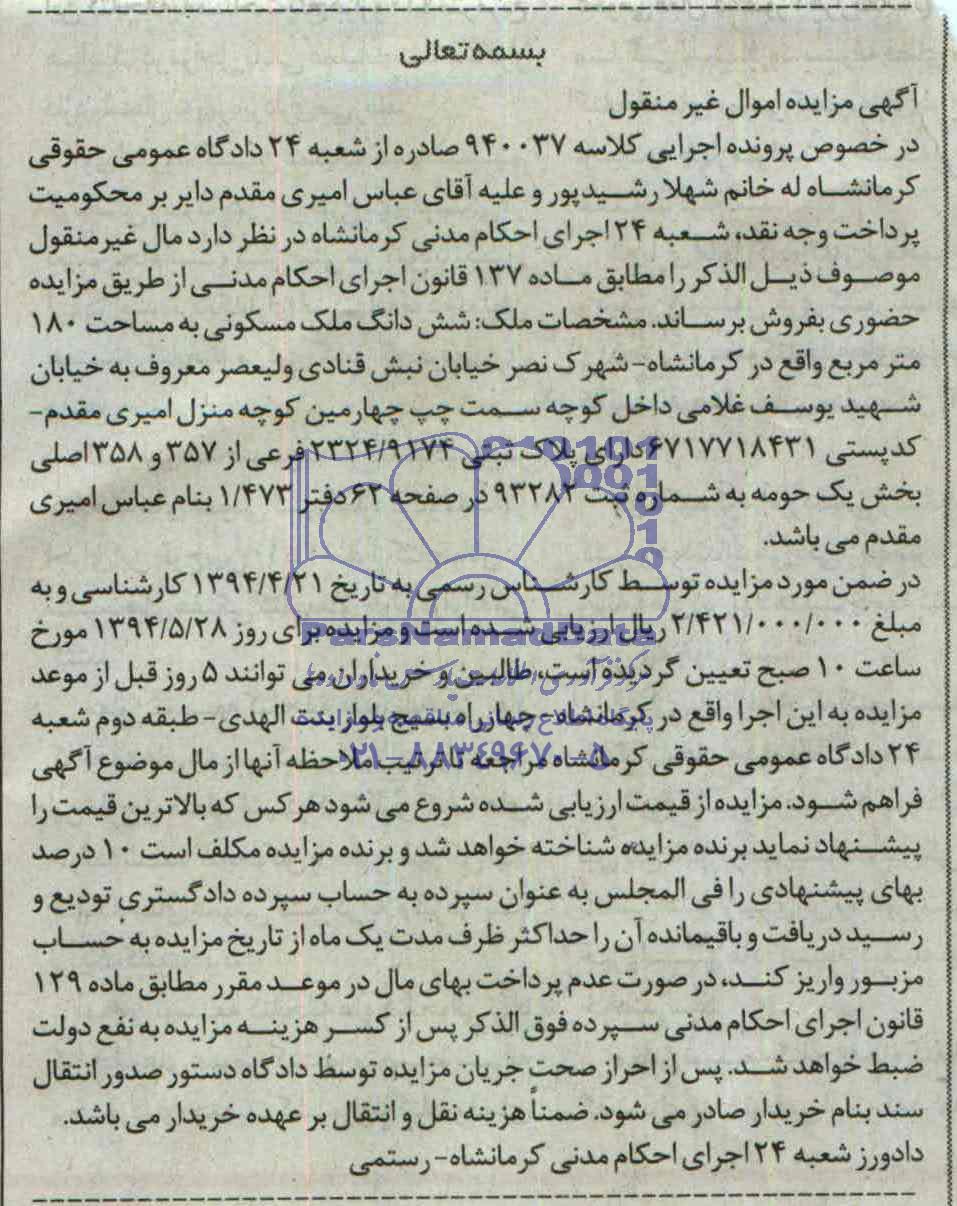 بسمه تعالی
آگهی مزایده اموال غیر منقول
در خصوص پرونده اجرایی کلاسه ۹۴۰۰۳۷ صادره از شعبه ۲۴ دادگاه عمومی حقوقی
کرمانشاه له خانم شهلا رشیدپور و علیه آقای عباس امیری مقدم دایر بر محکومیت
پرداخت وجه نقد، شعبه ۲۴ اجرای احکام مدنی کرمانشاه در نظر دارد مال غیرمنقول
موصوف ذیل الذکر را مطابق ماده ۱۳۷ قانون اجرای احکام مدنی از طریق مزایده
حضوری بفروش برساند. مشخصات ملک: شش دانگ ملک مسکونی به مساحت ۱۸۰
متر مربع واقع در کرمانشاه- شهرک نصر خیابان نبش قنادی ولیعصر معروف به خیابان
شهید یوسف غلامی داخل کوچه سمت چپ چهارمین کوچه منزل امیری مقدم-
کدپستی ۶۷۱۷۷۱۸۴۳۱ دارای پلاک ثبتی ۲۳۲۴/۹۱۷۴ فرعی از ۳۵۷ و ۳۵۸ اصلی
بخش یک حومه به شماره ثبت ۹۳۲۸۲ در صفحه ۶۲ دفتر ۱/۴۷۳ بنام عباس امیری
مقدم می باشد.
در ضمن مورد مزایده توسط کارشناس رسمی به تاریخ ۱۳۹۴/۴/۲۱ کارشناسی و به
مبلغ ۲/۴۲۱/۰۰۰/۰۰۰ ریال ارزیابی شده است و مزایده برای روز ۱۳۹۴/۵/۲۸ مورخ
ساعت ۱۰ صبح تعیین گردیده است، طالبین و خریداران می توانند ۵ روز قبل از موعد
مزایده به این اجرا واقع در کرمانشاه - چهارراه بسیج بلوار بنت الهدی- طبقه دوم شعبه
۲۴ دادگاه عمومی حقوقی کرمانشاه مراجعه تا ترتیب ملاحظه آنها از مال موضوع آگهی
فراهم شود. مزایده از قیمت ارزیابی شده شروع می شود هر کس که بالاترین قیمت را
پیشنهاد نماید برنده مزایده شناخته خواهد شد و برنده مزایده مکلف است ۱۰ درصد
بهای پیشنهادی را فی المجلس به عنوان سپرده به حساب سپرده دادگستری تودیع و
رسید دریافت و باقیمانده آن را حداکثر ظرف مدت یک ماه از تاریخ مزایده به حساب
مزبور واریز کند، در صورت عدم پرداخت بهای مال در موعد مقرر مطابق ماده ۱۲۹
قانون اجرای احکام مدنی سپرده فوق الذکر پس از کسر هزینه مزایده به نفع دولت
ضبط خواهد شد. پس از احراز صحت جریان مزایده توسط دادگاه دستور صدور انتقال
سند بنام خریدار صادر می شود. ضمناً هزینه نقل و انتقال بر عهده خریدار می باشد.
دادورز شعبه ۲۴ اجرای احکام مدنی کرمانشاه- رستمی
ParsNamadData
۰۲۱-۸۸۳۴۹۶۷۰-۵